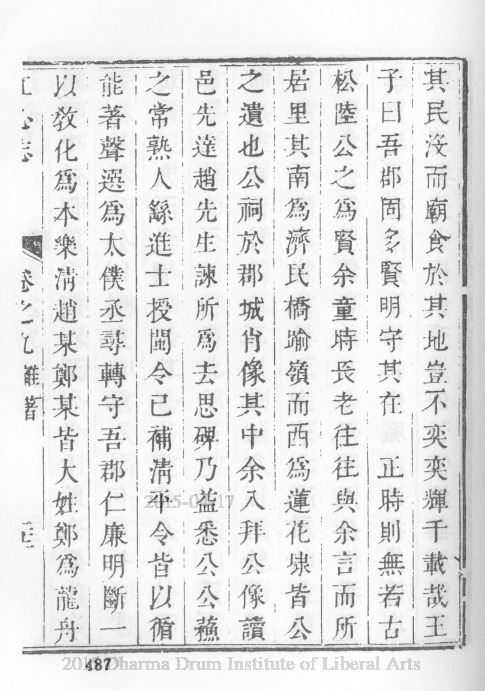 其民沒而廟食於其地豈不奕奕輝千載哉王
子曰吾郡固多賢明守其在 正時則無若古
松陸公之為賢余童時長老往往與余言而所
居里其南為濟民橋踰嶺而西為蓮花埭皆公
之遺也公祠於郡城肖像其中余入拜公像讀
邑先達趙先生諫所為去思碑乃益悉公公蘓
之常熟人繇進士授閩令已補清平令皆以循
能著聲選為太僕丞尋轉守吾郡仁廉明斷一
以教化為本樂清趙某鄭某皆大姓鄭為龍舟
志 卷之九 雜著
487
Dharma Drum Institute of Liberal Arts